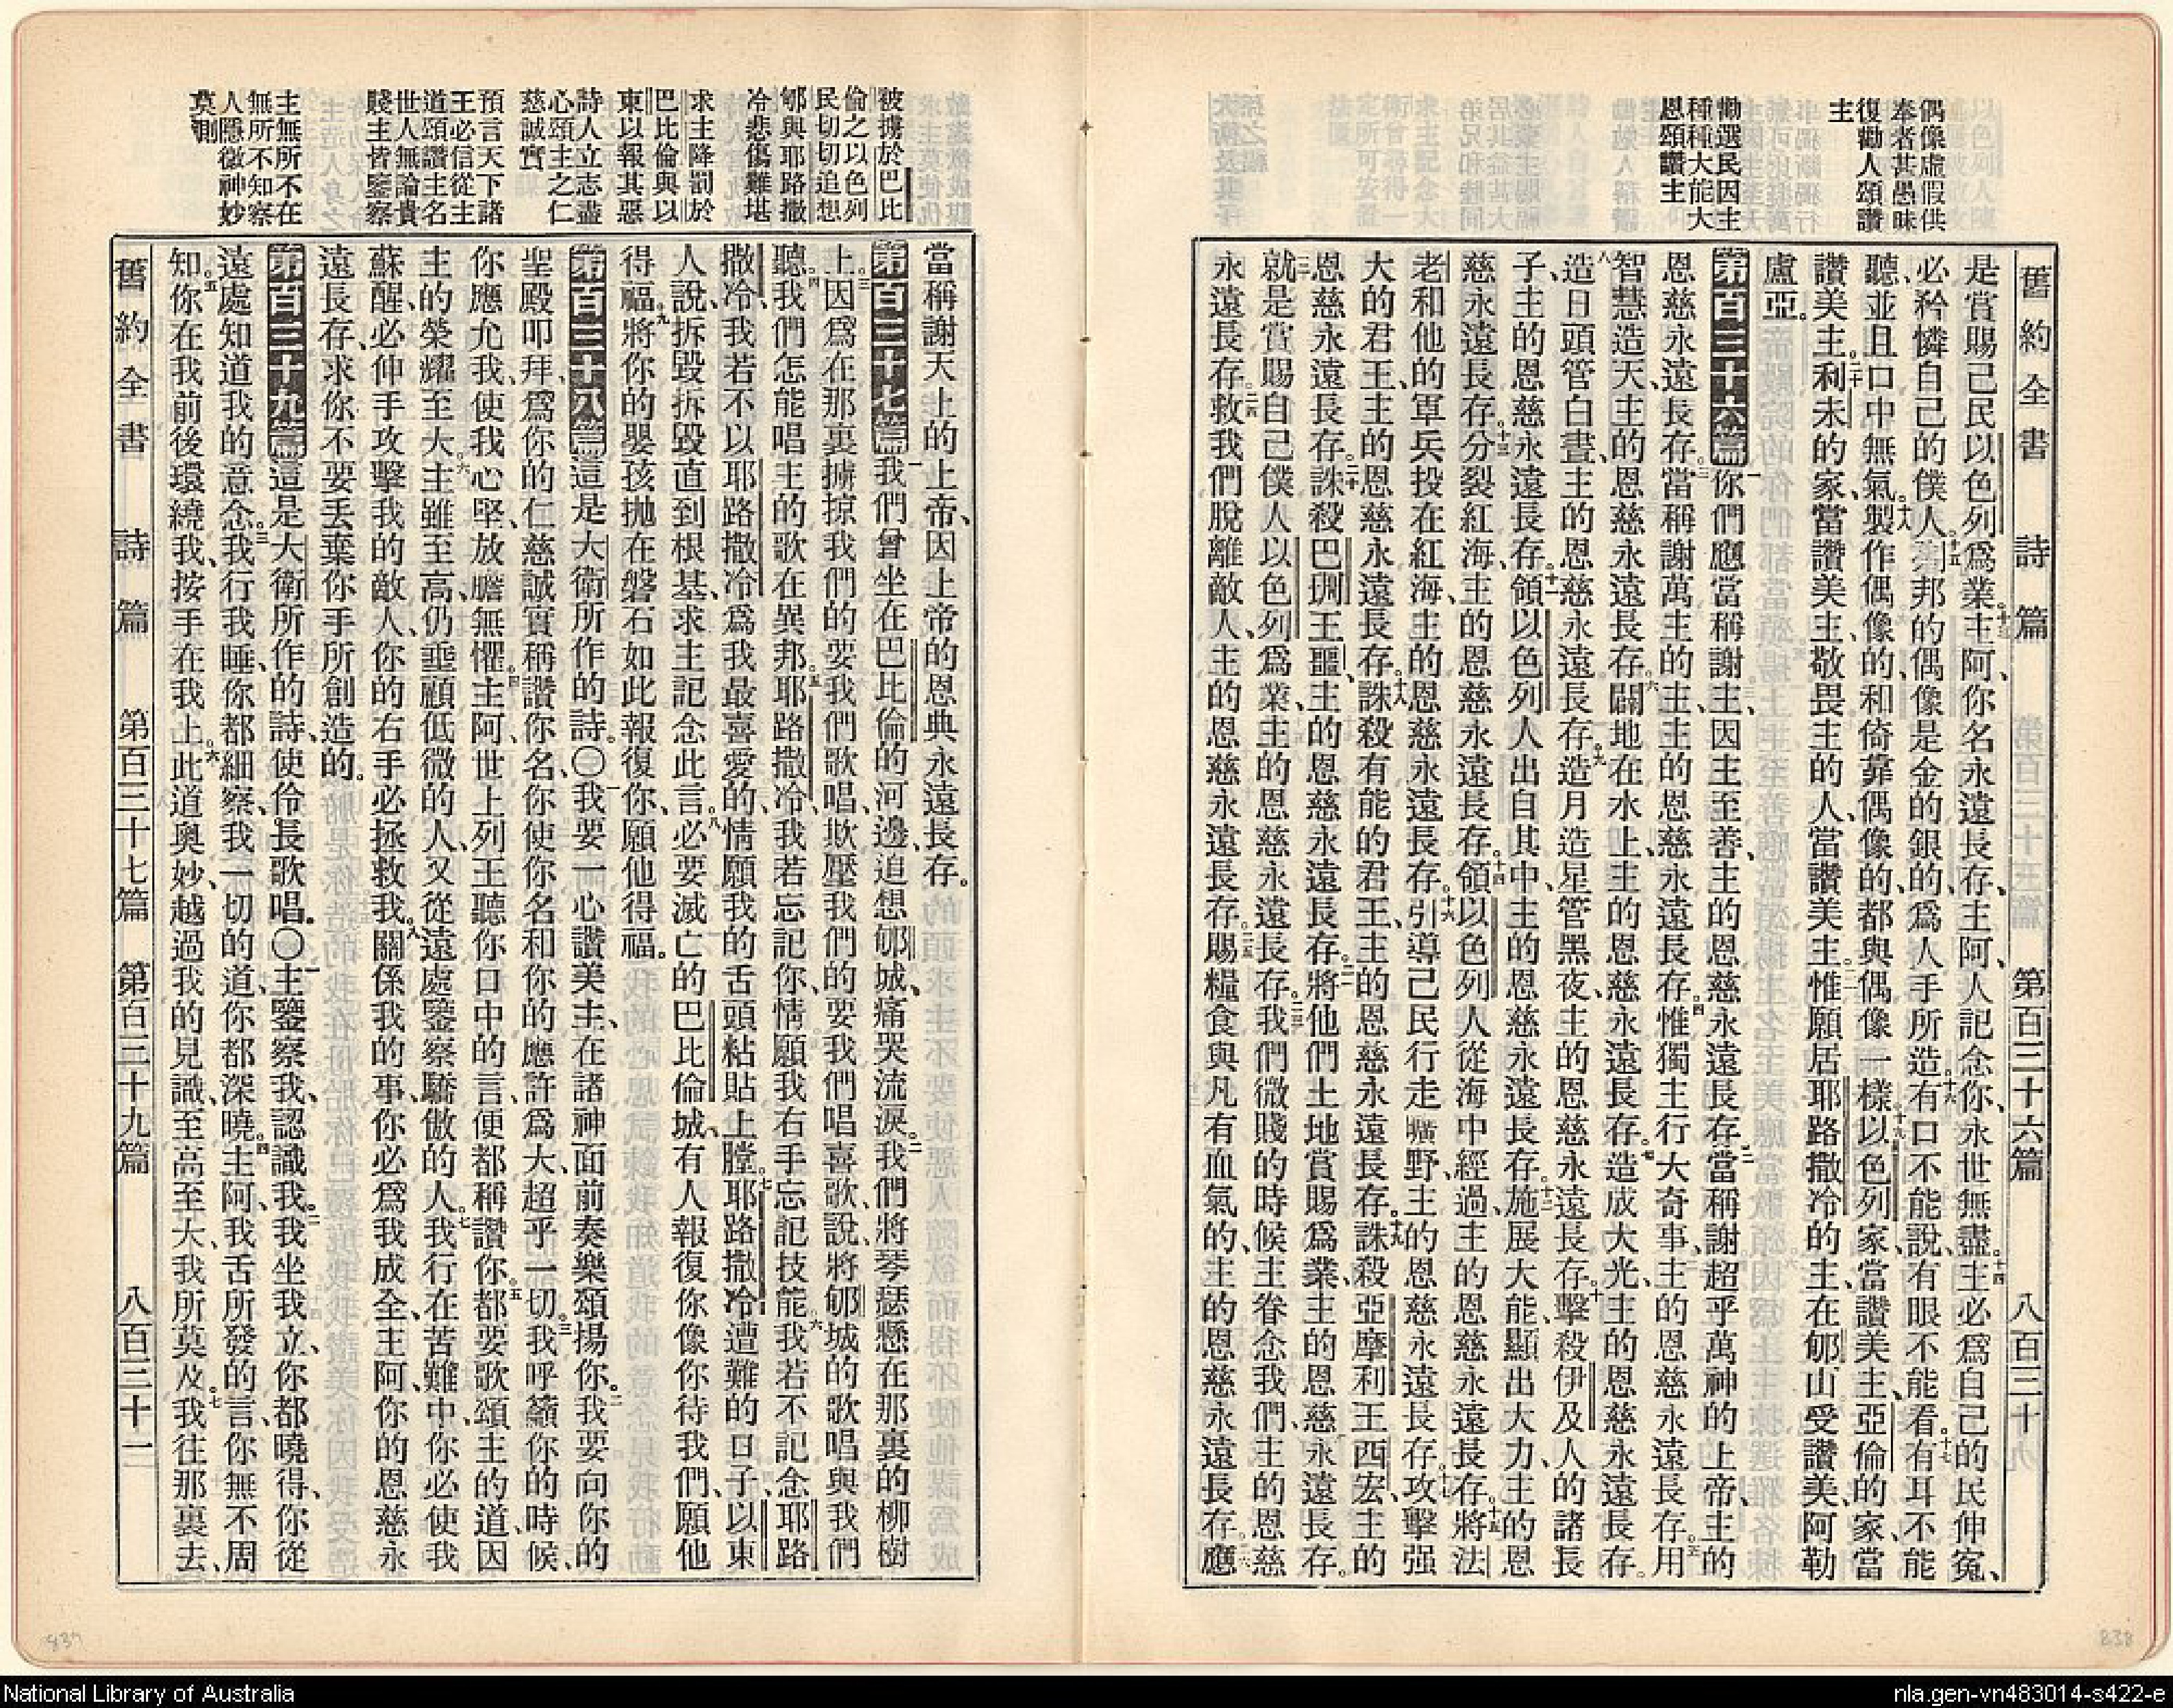 舊約全書 詩篇 第百三十六篇 八百三十
偶像虛假供
奉者甚愚昧
復勸人頌讚
主
勸選民因主
種種大能大
恩頌讚主
是賞賜己民以色列爲業。十三主阿、你名永遠長存、主阿、人記念你、永世無盡。十四主必爲自己的民伸寃、
必矜憐自己的僕人。十五別邦的偶像是金的銀的、爲人手所造。十六有口不能說、有眼不能看。十七有耳不能
聽、並且口中無氣。十八製作偶像的、和倚靠偶像的、都與偶像一樣。十九以色列家、當讚美主、亞倫的家、當
讚美主。二十利未的家、當讚美主、敬畏主的人、當讚美主。二一惟願居耶路撒冷的主、在郇山受讚美、阿勒
盧亞。
第百三十六篇 一你們應當稱謝主、因主至善、主的恩慈永遠長存。二當稱謝超乎萬神的上帝、主的
恩慈永遠長存。三當稱謝萬主的主、主的恩慈永遠長存。四惟獨主行大奇事、主的恩慈永遠長存。五用
智慧造天、主的恩慈永遠長存。六闢地在水上、主的恩慈永遠長存。七造成大光、主的恩慈永遠長存。
八造日頭管白晝、主的恩慈永遠長存。九造月造星管黑夜、主的恩慈永遠長存。十擊殺伊及人的諸長
子、主的恩慈永遠長存。十一領以色列人出自其中、主的恩慈永遠長存。十二施展大能、顯出大力、主的恩
慈永遠長存。十三分裂紅海、主的恩慈永遠長存。十四領以色列人從海中經過、主的恩慈永遠長存。十五將法
老和他的軍兵投在紅海、主的恩慈永遠長存。十六引導己民行走曠野、主的恩慈永遠長存。十七攻擊强
大的君王、主的恩慈永遠長存。十八誅殺有能的君王、主的恩慈永遠長存。十九誅殺亞摩利王西宏、主的
恩慈永遠長存。二十誅殺巴珊王噩、主的恩慈永遠長存。二一將他們土地賞賜爲業、主的恩慈永遠長存。
二二就是賞賜自己僕人以色列爲業、主的恩慈永遠長存。二三我們微賤的時候、主眷念我們、主的恩慈
永遠長存。二四救我們脫離敵人、主的恩慈永遠長存。二五賜糧食與凡有血氣的、主的恩慈永遠長存。二六應
838
當稱謝天上的上帝、因上帝的恩典永遠長存。
被擄於巴比
倫之以色列
民切切追想
郇與耶路撒
冷悲傷難堪
求主降罰於
巴比倫與以
東以報其惡
詩人立志盡
心頌主之仁
慈誠實
預言天下諸
王必信從主
道頌讚主名
世人無論貴
賤主皆鑒察
主無所不在
無所不知察
人隱微神妙
莫測
第百三十七篇 一我們曾坐在巴比倫的河邊、追想郇城、痛哭流淚。二我們將琴瑟懸在那裏的柳樹
上。三因爲在那裏擄掠我們的、要我們歌唱、欺壓我們的、要我們唱喜歌、說、將郇城的歌唱與我們
聽。四我們怎能唱主的歌在異邦。五耶路撒冷、我若忘記你、情願我右手忘記技能。六我若不記念耶路
撒冷、我若不以耶路撒冷爲我最喜愛的、情願我的舌頭粘貼上膛。七耶路撒冷遭難的日子、以東
人說、拆毀拆毀、直到根基、求主記念此言。八必要滅亡的巴比倫城、有人報復你像你待我們、願他
得福。九將你的嬰孩拋在磐石、如此報復你、願他得福。
第百三十八篇 這是大衛所作的詩。〇一我要一心讚美主、在諸神面前奏樂頌揚你。二我要向你的
聖殿叩拜、爲你的仁慈誠實稱讚你名、你使你名和你的應許爲大、超乎一切。三我呼籲你的時候、
你應允我、使我心堅、放膽無懼。四主阿、世上列王聽你口中的言、便都稱讚你。五都要歌頌主的道、因
主的榮耀至大。六主雖至高、仍垂顧低微的人、又從遠處鑒察驕傲的人。七我行在苦難中、你必使我
蘇醒、必伸手攻擊我的敵人、你的右手必拯救我。八關係我的事、你必爲我成全、主阿、你的恩慈永
遠長存、求你不要丟棄你手所創造的。
第百三十九篇 這是大衛所作的詩、使伶長歌唱。〇一主鑒察我、認識我。二我坐我立、你都曉得、你從
遠處知道我的意念。三我行我睡、你都細察、我一切的道、你都深曉。四主阿、我舌所發的言、你無不周
知。五你在我前後環繞我、按手在我上。六此道奧妙、越過我的見識、至高至大、我所莫及。七我往那裏去、
舊約全書 詩篇 第百三十七篇 第百三十九篇 八百三十一
837
National Library of Australia
nla.gen-vn483014-s422-e